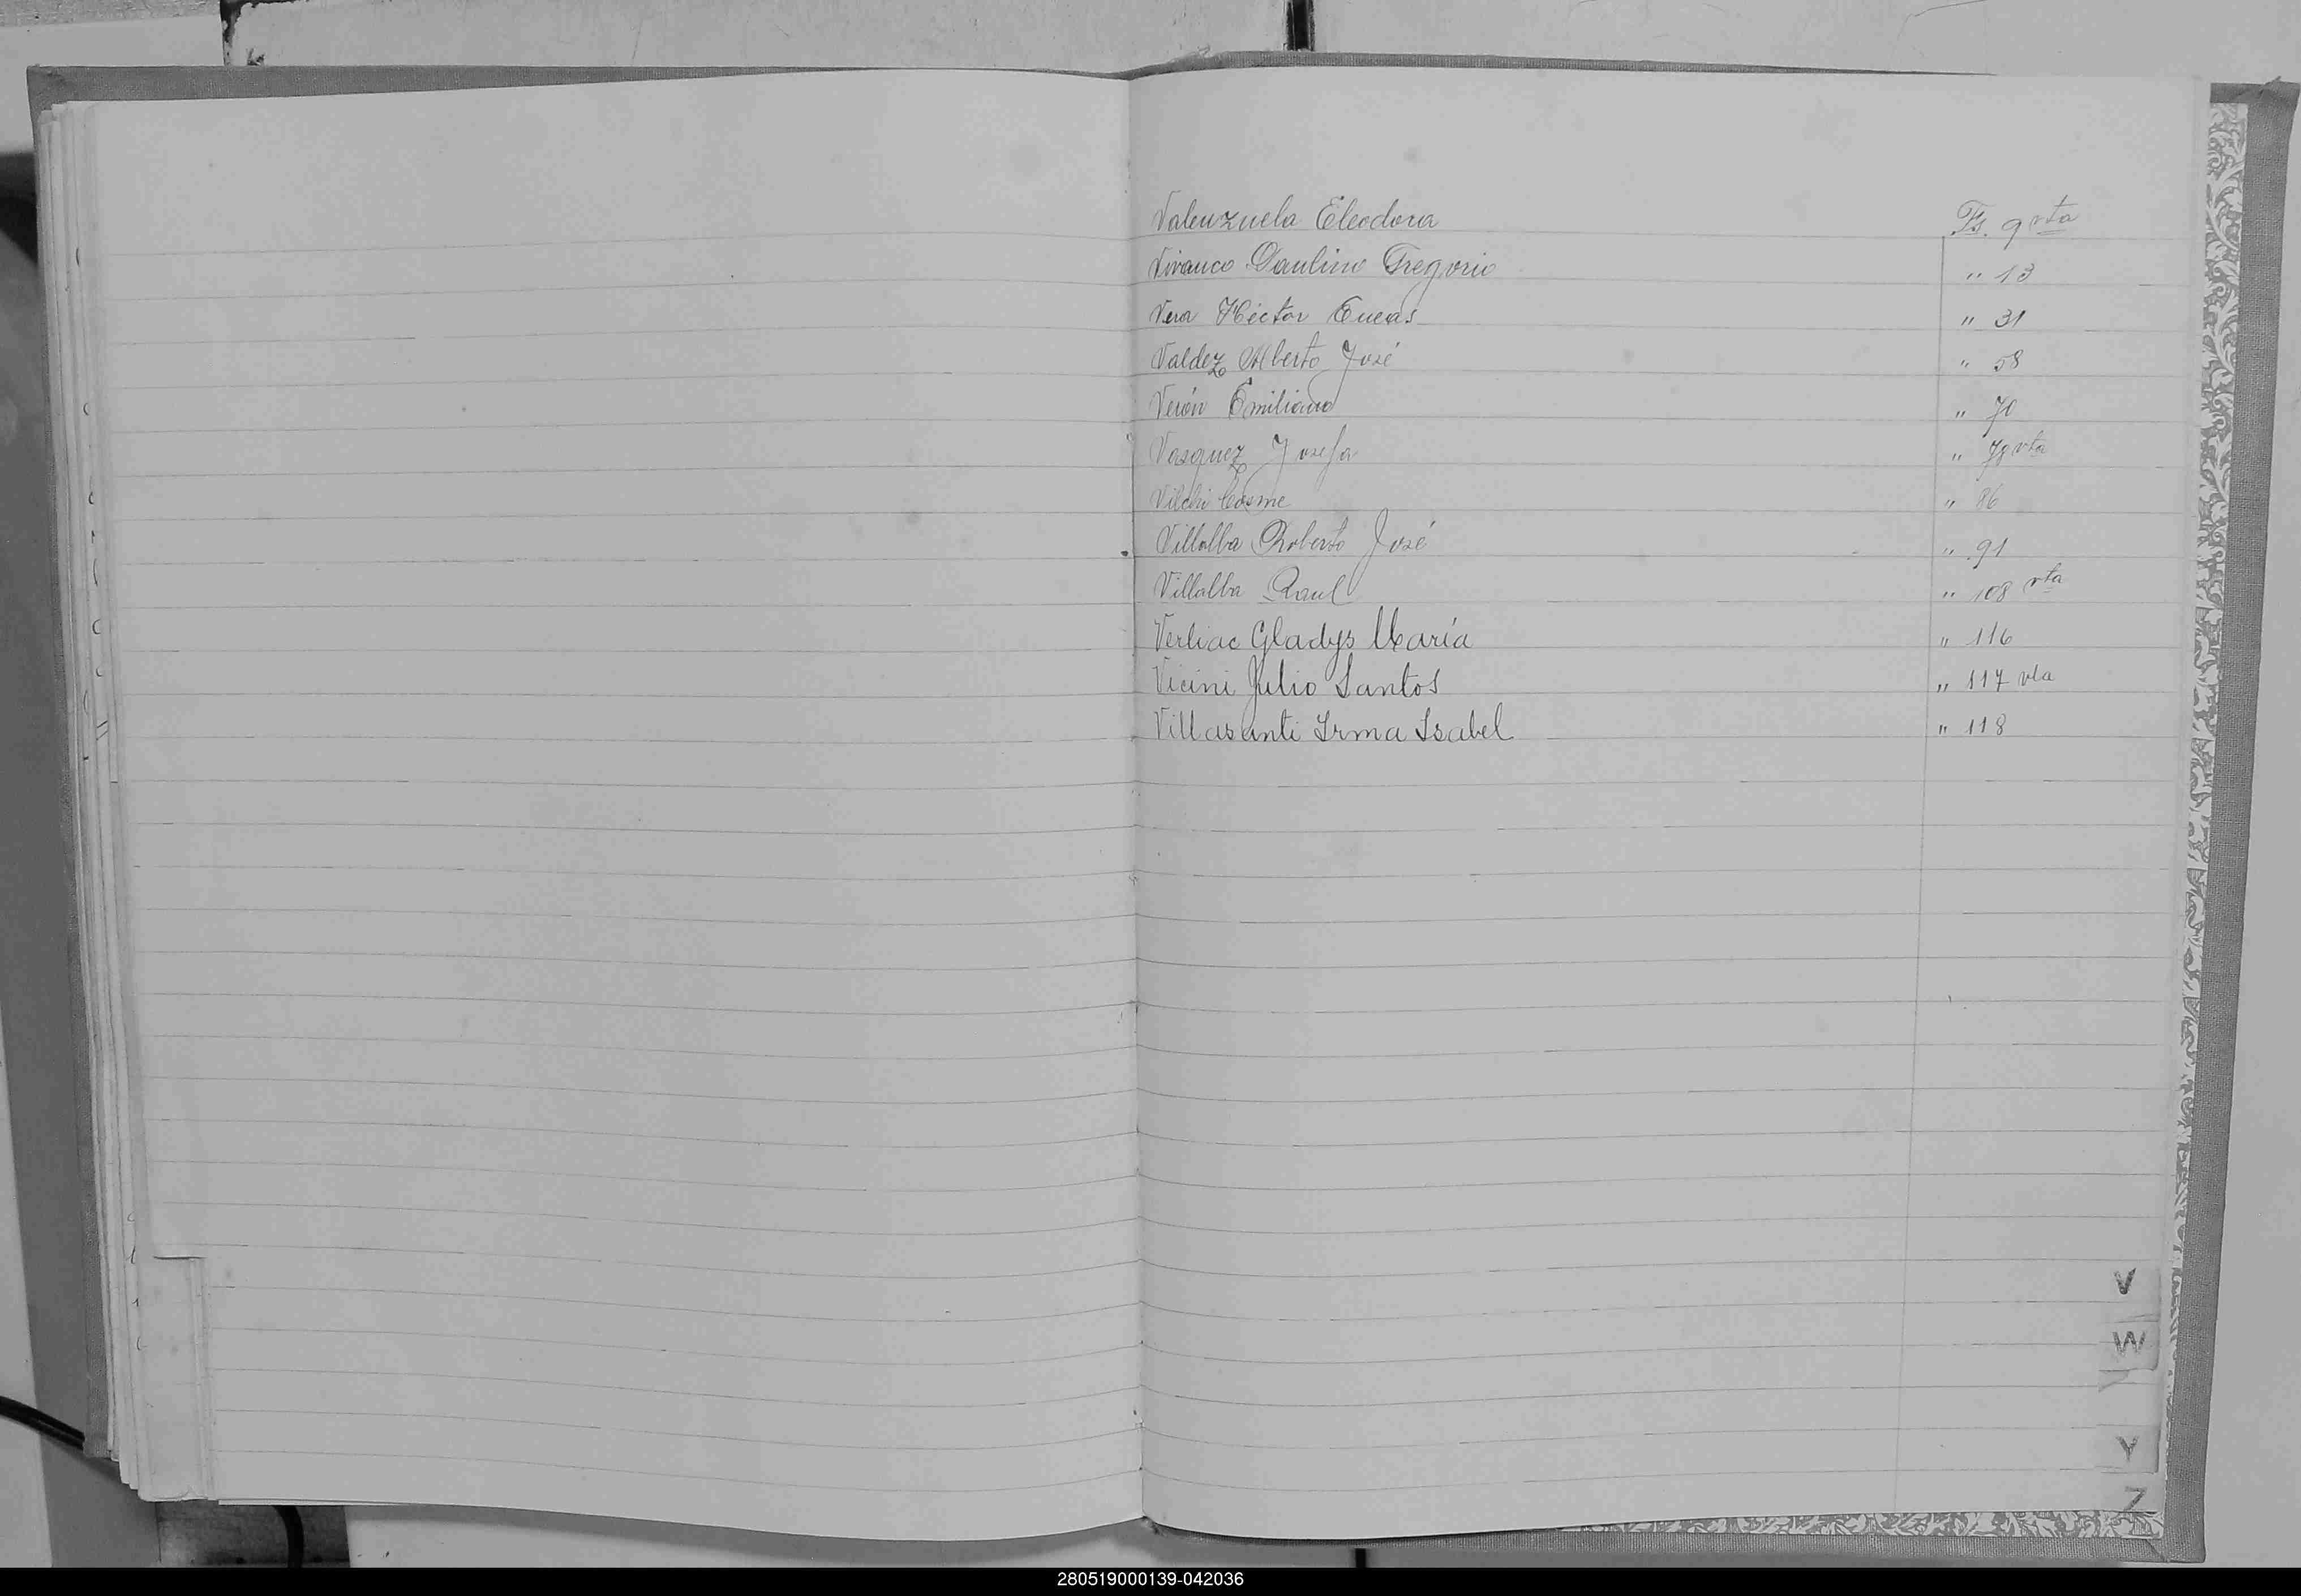 Valenzuela Eleodora Fs. 9 vta
Vivanco Paulino Gregorio " 13
Vera Héctor Eneas " 31
Valdez Alberto José " 58
Verón Emiliano " 70
Vasquez Josefa " 79 vta
Vilchi Cosme " 86
Villalba Roberto José " 91
Villalba Raul " 108 vta
Verliac Gladys María " 116
Vicini Julio Santos " 117 vta
Villasanti Irma Isabel " 118
V
W
Y
Z
280519000139-042036